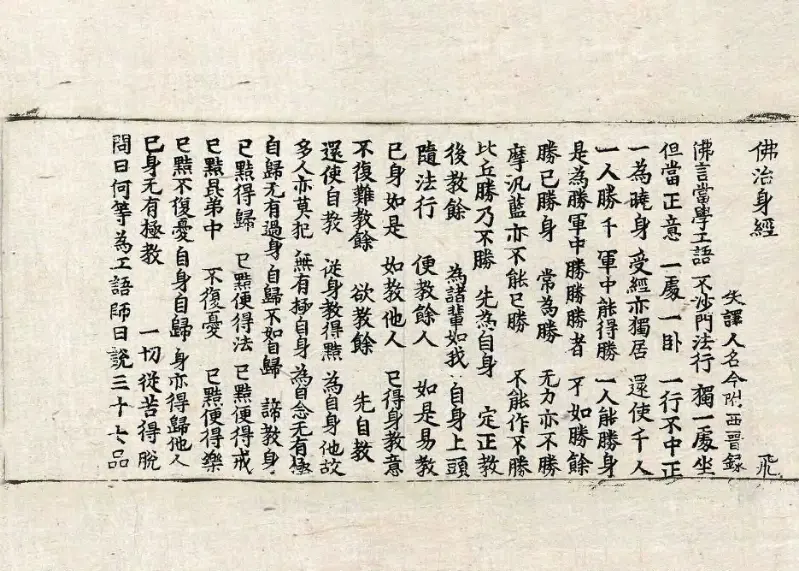 佛治身經 飛
失譯人名今附西晉録
佛言當學工語 不沙門法行 獨一處坐
但當正意 一處一卧 一行不中正
一為曉身 受經亦獨居 還使千人
一人勝千 軍中能得勝 一人能勝身
是為勝軍中勝勝勝者 不如勝餘
勝已勝身 常為勝 无力亦不勝
摩汎藍亦不能已勝 不能作不勝
比丘勝乃不勝 先為自身 定正教
後教餘 為諸輩如我 自身上頭
隨法行 便教餘人 如是易教
已身如是 如教他人 已得身教意
不復難教餘 欲教餘 先自教
還使自教 從身教得黠 為自身他故
多人亦莫犯 無有極自身為自念无有極
自歸无有過身自歸不如自歸 諦教身
已黠得歸 已黠便得法 已黠便得戒
已黠具弟中 不復憂 已黠便得樂
已黠不復憂自身自歸 身亦得歸他人
已身无有極教 一切從苦得脫
問曰何等為工語師曰說三十七品